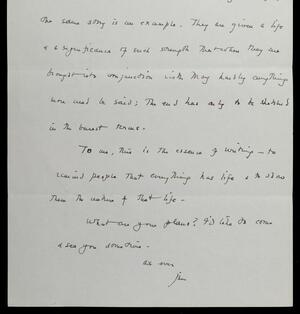 the same story is an example. They are given a life
& a significance of such strength that when they are
brought into conjunction with May hardly anything
more need be said; The end has only to be sketched
in the barest terms.
To me, this is the essence of writing – to
remind people that everything has life & to show
them the nature of that life –
What are your plans? I'd like to come
& see you sometime –
as ever